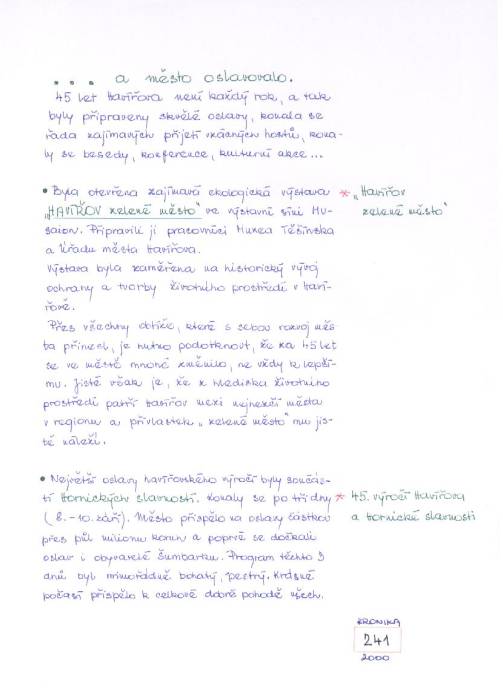 . . . a město oslavovalo.
45 let Havířova není každý rok, a tak
byly připraveny skvělé oslavy, konala se
řada zajímavých přijetí vzácných hostů, kona-
ly se besedy, konference, kulturní akce ...
• Byla otevřena zajímavá ekologická výstava
"HAVÍŘOV zelené město" ve výstavní síni Mu-
saion. Připravili ji pracovníci Muzea Těšínska
a Úřadu města Havířova.
Výstava byla zaměřena na historický vývoj
ochrany a tvorby životního prostředí v Haví-
řově.
Přes všechny obtíže, které s sebou rozvoj měs-
ta přinesl, je nutno podotknout, že za 45 let
se ve městě mnohé změnilo, ne vždy k lepší-
mu. Jisté však je, že z hlediska životního
prostředí patří Havířov mezi nejhezčí města
v regionu a přívlastek "zelené město" mu jis-
tě náleží.
* "Havířov
zelené město"
• Největší oslavy havířovského výročí byly součás-
tí Hornických slavností. Konaly se po tři dny
(8. - 10. září). Město přispělo na oslavy částkou
přes půl milionu korun a poprvé se dočkali
oslav i obyvatelé Šumbarku. Program těchto 3
dnů byl mimořádně bohatý, pestrý. Krásné
počasí přispělo k celkové dobré pohodě všech.
* 45. výročí Havířova
a Hornické slavnosti
KRONIKA
241
2000